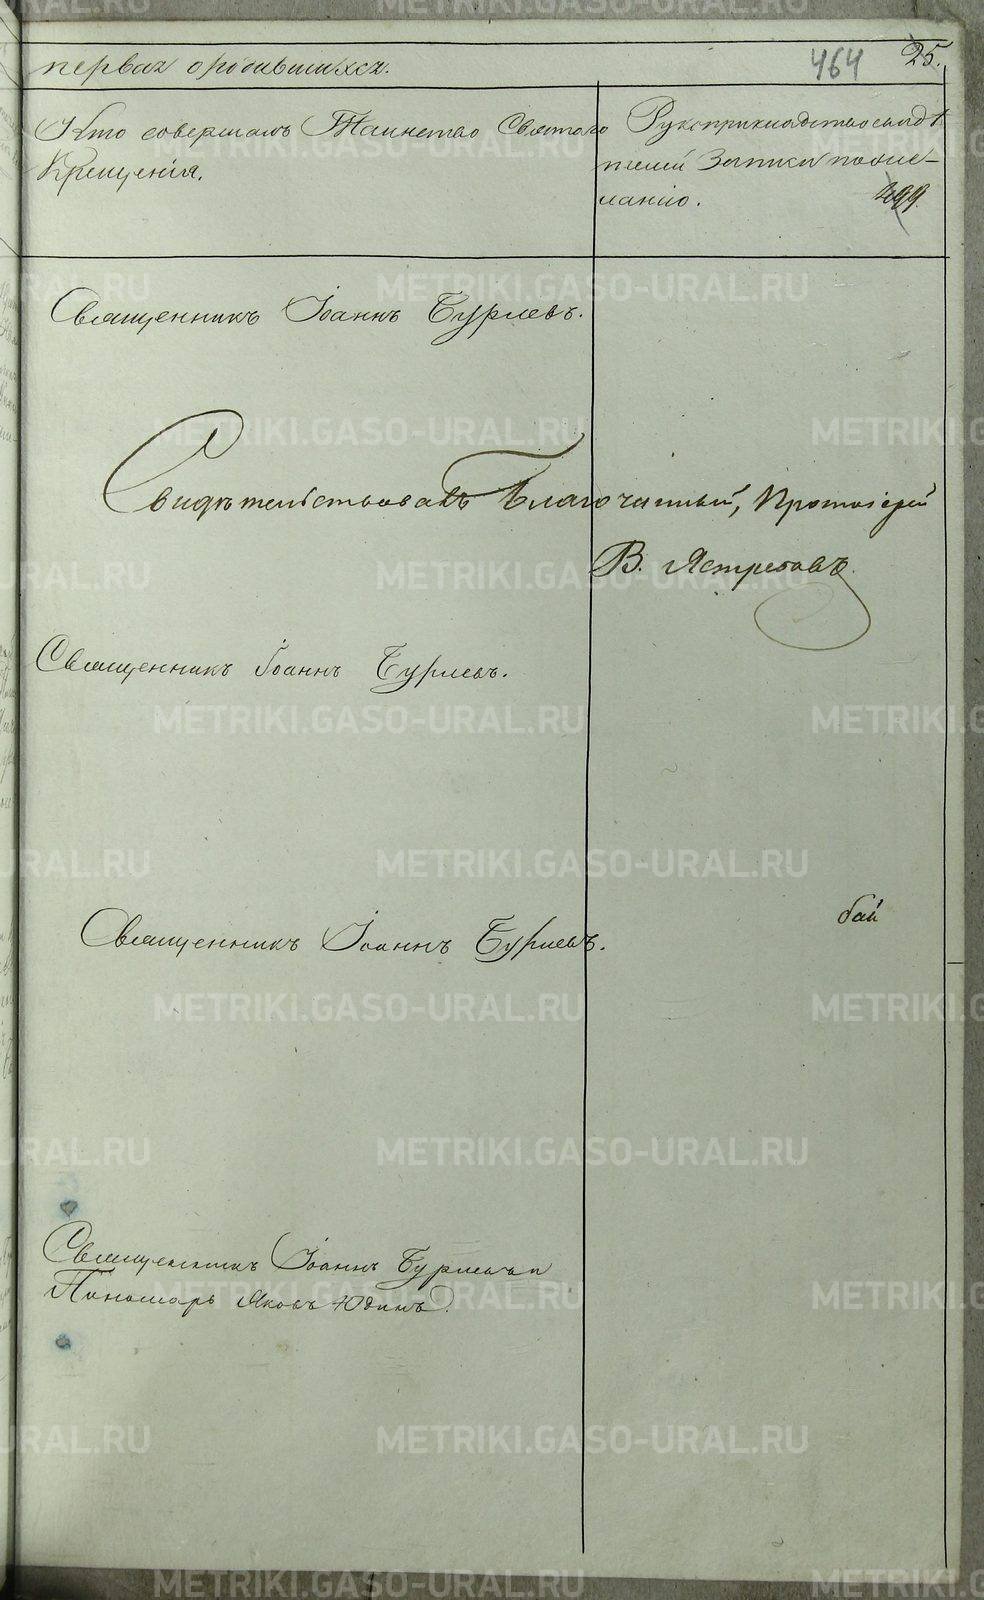 первая о родившихся.
464
25.
Кто совершалъ Таинство Святаго
Крещенія.
Рукоприкладство свидѣ
телей записи по же-
ланію.
499
Священникъ Іоаннъ Бурлевъ.
Свидѣтельствовалъ Благочинный, Протоіерей
В. Ястребовъ.
Священникъ Іоаннъ Бурлевъ.
бай
Священникъ Іоаннъ Бурлевъ.
Священникъ Іоаннъ Бурлевъ и
Пономарь Яковъ Юдинъ.
METRIKI.GASO-URAL.RU